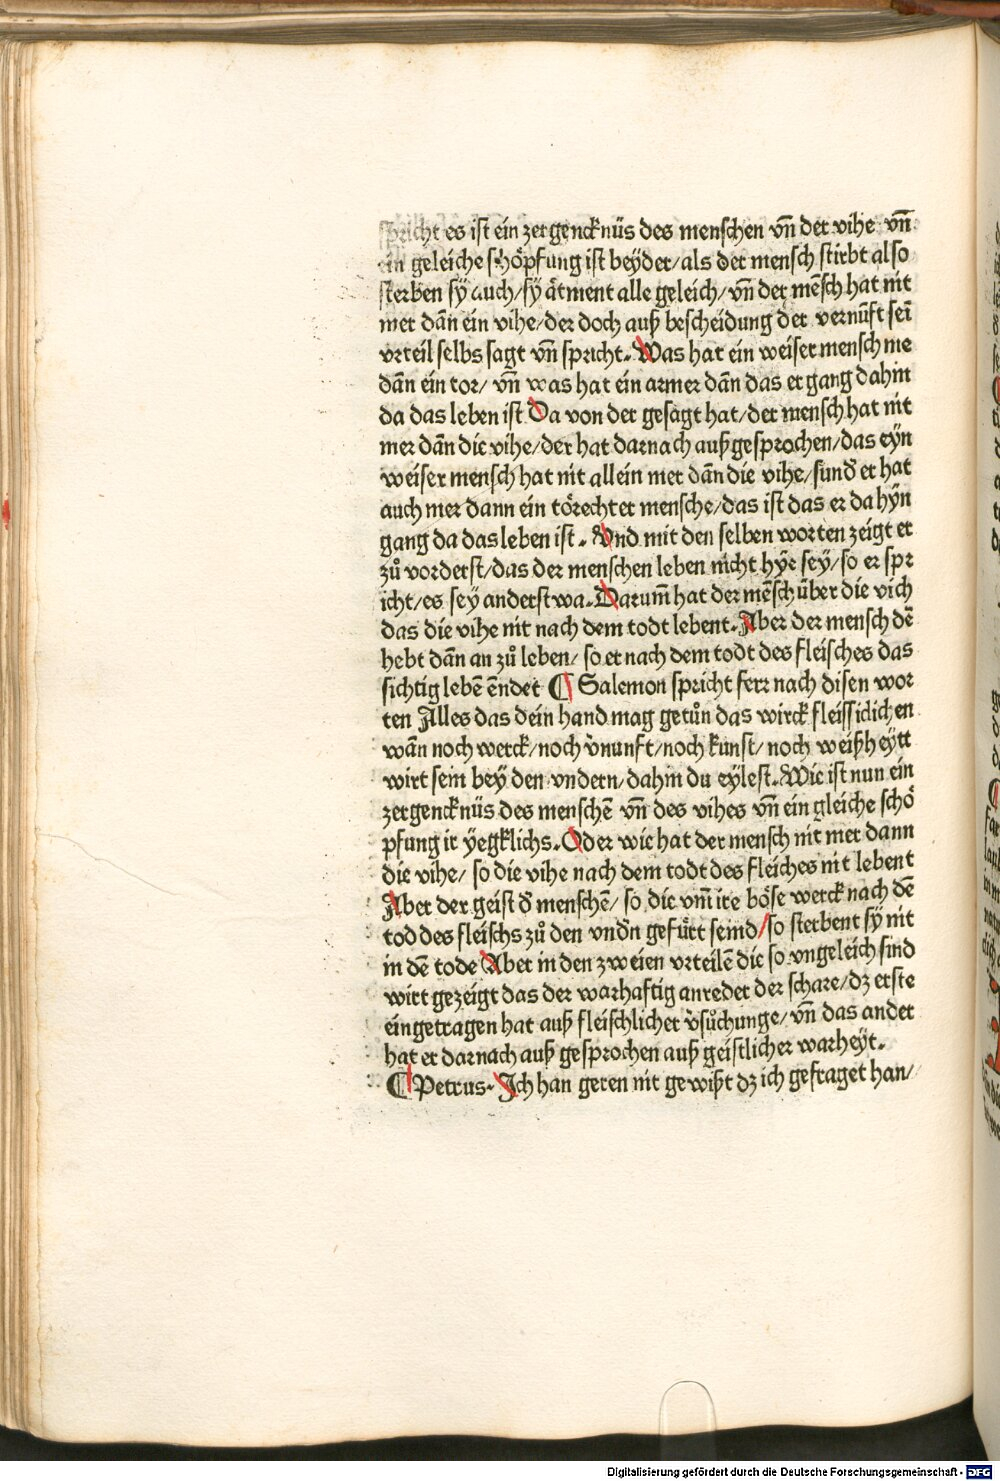 spricht es ist ein zergencknüs des menschen vñ der vihe vñ
ein geleiche schöpfung ist beyder/als der mensch stirbt also
sterben sÿ auch/sÿ ätment alle geleich/vñ der mēsch hat nit
mer dān ein vihe/der doch auß bescheidung der vernūft sei
vrteil selbs sagt vñ spricht. Was hat ein weiser mensch me
dān ein tor/ vñ was hat ein armer dān das er gang dahin
da das leben ist Da von der gesagt hat/der mensch hat nit
mer dān die vihe/der hat darnach außgesprochen/das eÿn
weiser mensch hat nit allein mer dān die vihe/sunđ er hat
auch mer dann ein törechter mensche/das ist das er da hÿn
gang da das leben ist. Vnd mit den selben worten zeigt er
zů vorderst/das der menschen leben nicht hÿe sey/so er spr
icht/es sey anderstwa. Darum̄ hat der mēsch über die vich
das die vihe nit nach dem todt lebent. Aber der mensch dē
hebt dān an zů leben/ so er nach dem todt des fleisches das
sichtig lebē ēndet ¶ Salemon spricht ferr nach disen wor
ten Alles das dein hand mag getůn das wirck fleissiclichen
wān noch werck/noch v̄nunft/noch kunst/ noch weißheytt
wirt sein beÿ den vndern/dahin du eylest. Wie ist nun ein
zergencknüs des menschē vñ des vihes vñ ein gleiche schö
pfung ir ÿegklichs. Oder wie hat der mensch nit mer dann
die vihe/ so die vihe nach dem todt des fleiches nit lebent
Aber der geist đ menschē/ so die vm̄ ire böse werck nach dē
tod des fleischs zů den vnđn gefürt seind/so sterbent sÿ nit
in dē tode Aber in den zweien vrteilē die so vngeleich sind
wirt gezeigt das der warhaftig anreder der schare/dz erste
eingetragen hat auß fleischlicher v̄sůchunge/vñ das ander
hat er darnach auß gesprochen auß geistlicher warheÿt.
¶ Petrus. Ich han geren nit gewißt dz ich gefraget han/
Digitalisierung gefördert durch die Deutsche Forschungsgemeinschaft - DFG